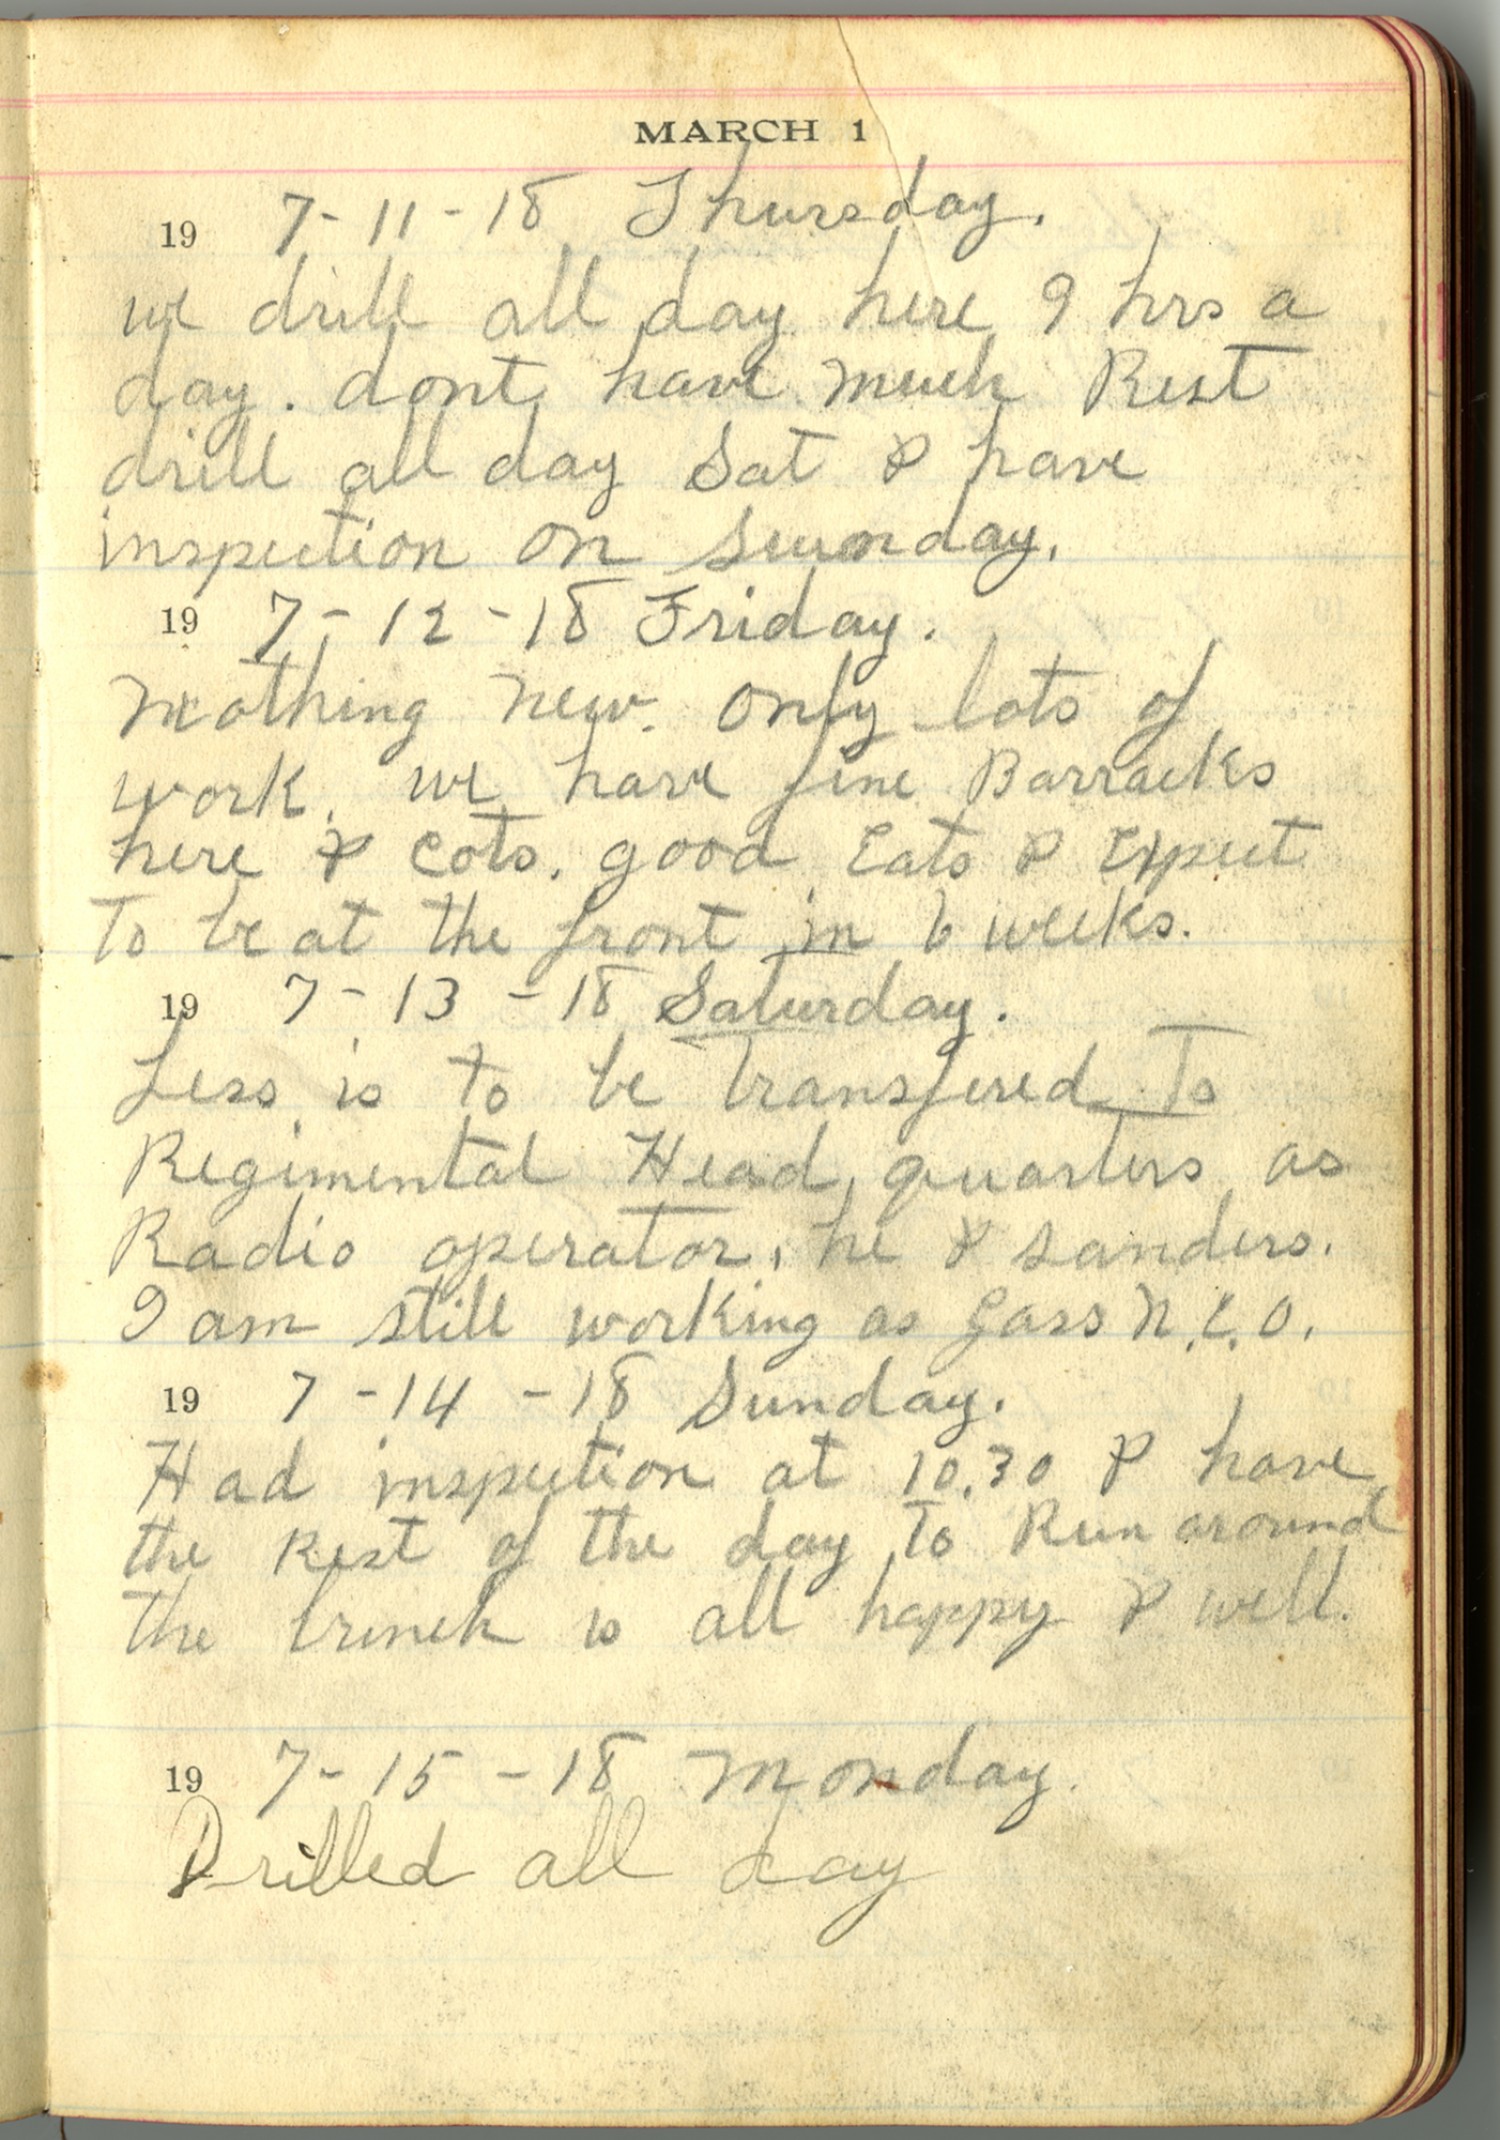 MARCH 1
19 7-11-18 Thursday.
we drill all day here 9 hrs a
day. dont have much Rest
drill all day Sat & have
inspection on Sunday.
19 7-12-18 Friday.
Nothing new. only lots of
work. we have fine Barracks
here & cots. good Eats & Expect
To be at the front in 6 weeks.
19 7-13-18 Saturday.
Less is to be transfered To
Regimental Head quarters as
Radio operator, he & Sanders.
I am still working as Gass N.C.O.
19 7-14-18 Sunday.
Had inspection at 10.30 & have
the Rest of the day To Run around
the bunch is all happy & well.
19 7-15-18 Monday.
Drilled all day